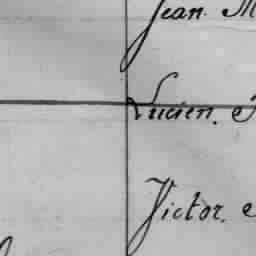 Jean. M
Lucien. e
Victor. e